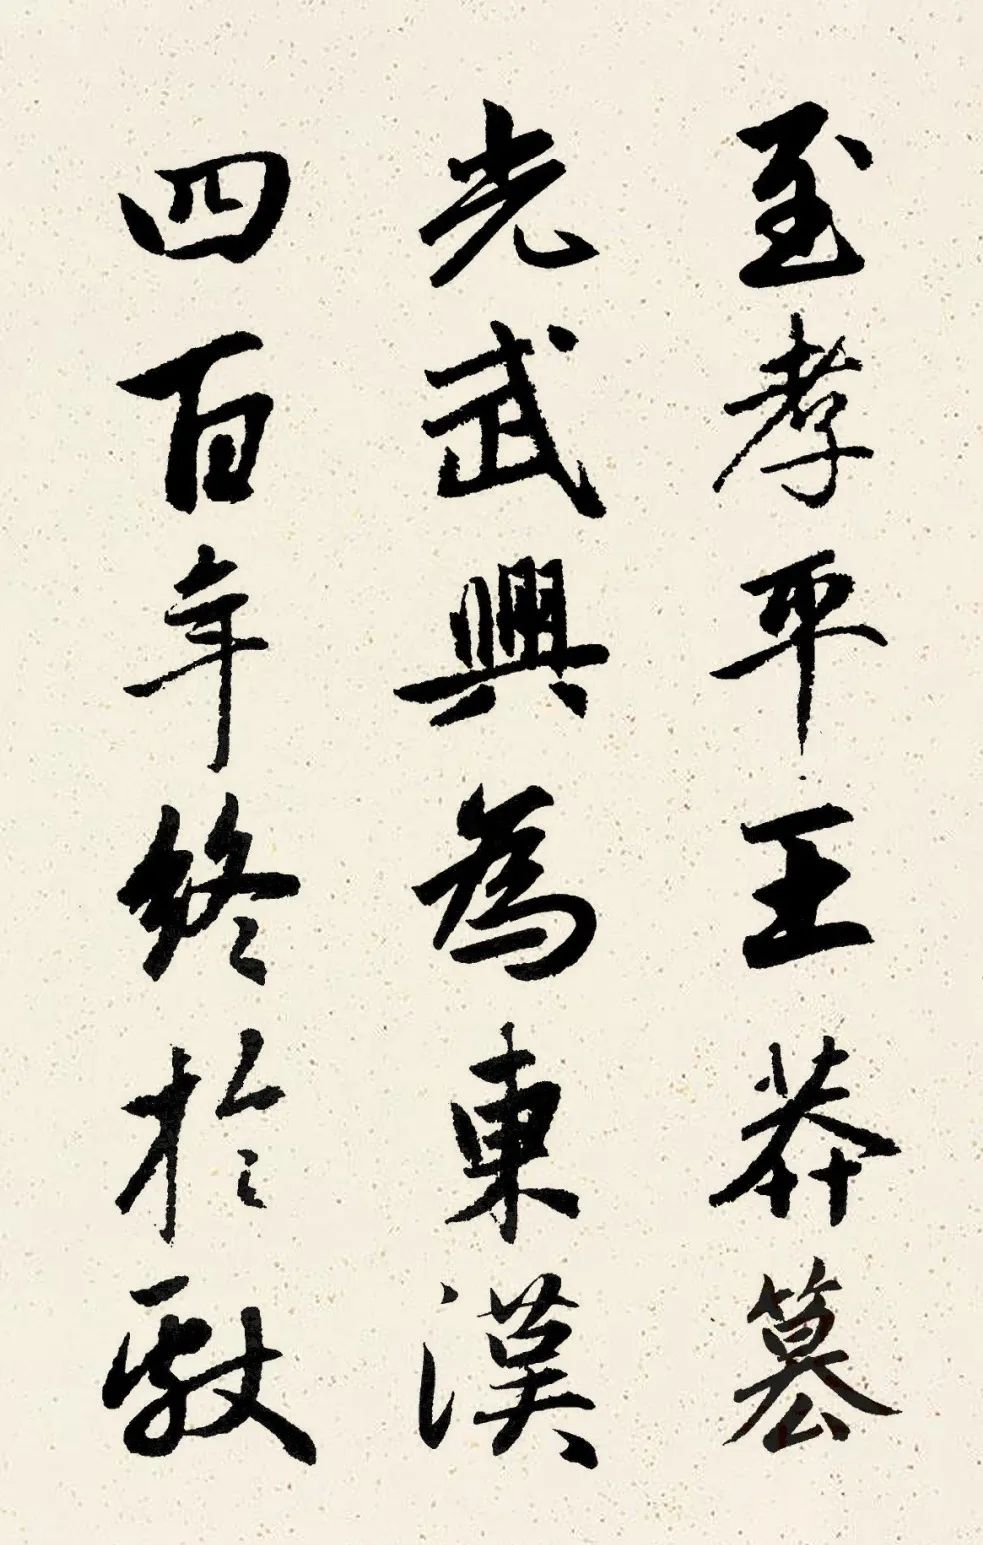 至孝平王莽篡
光武興為東漢
四百年終於獻